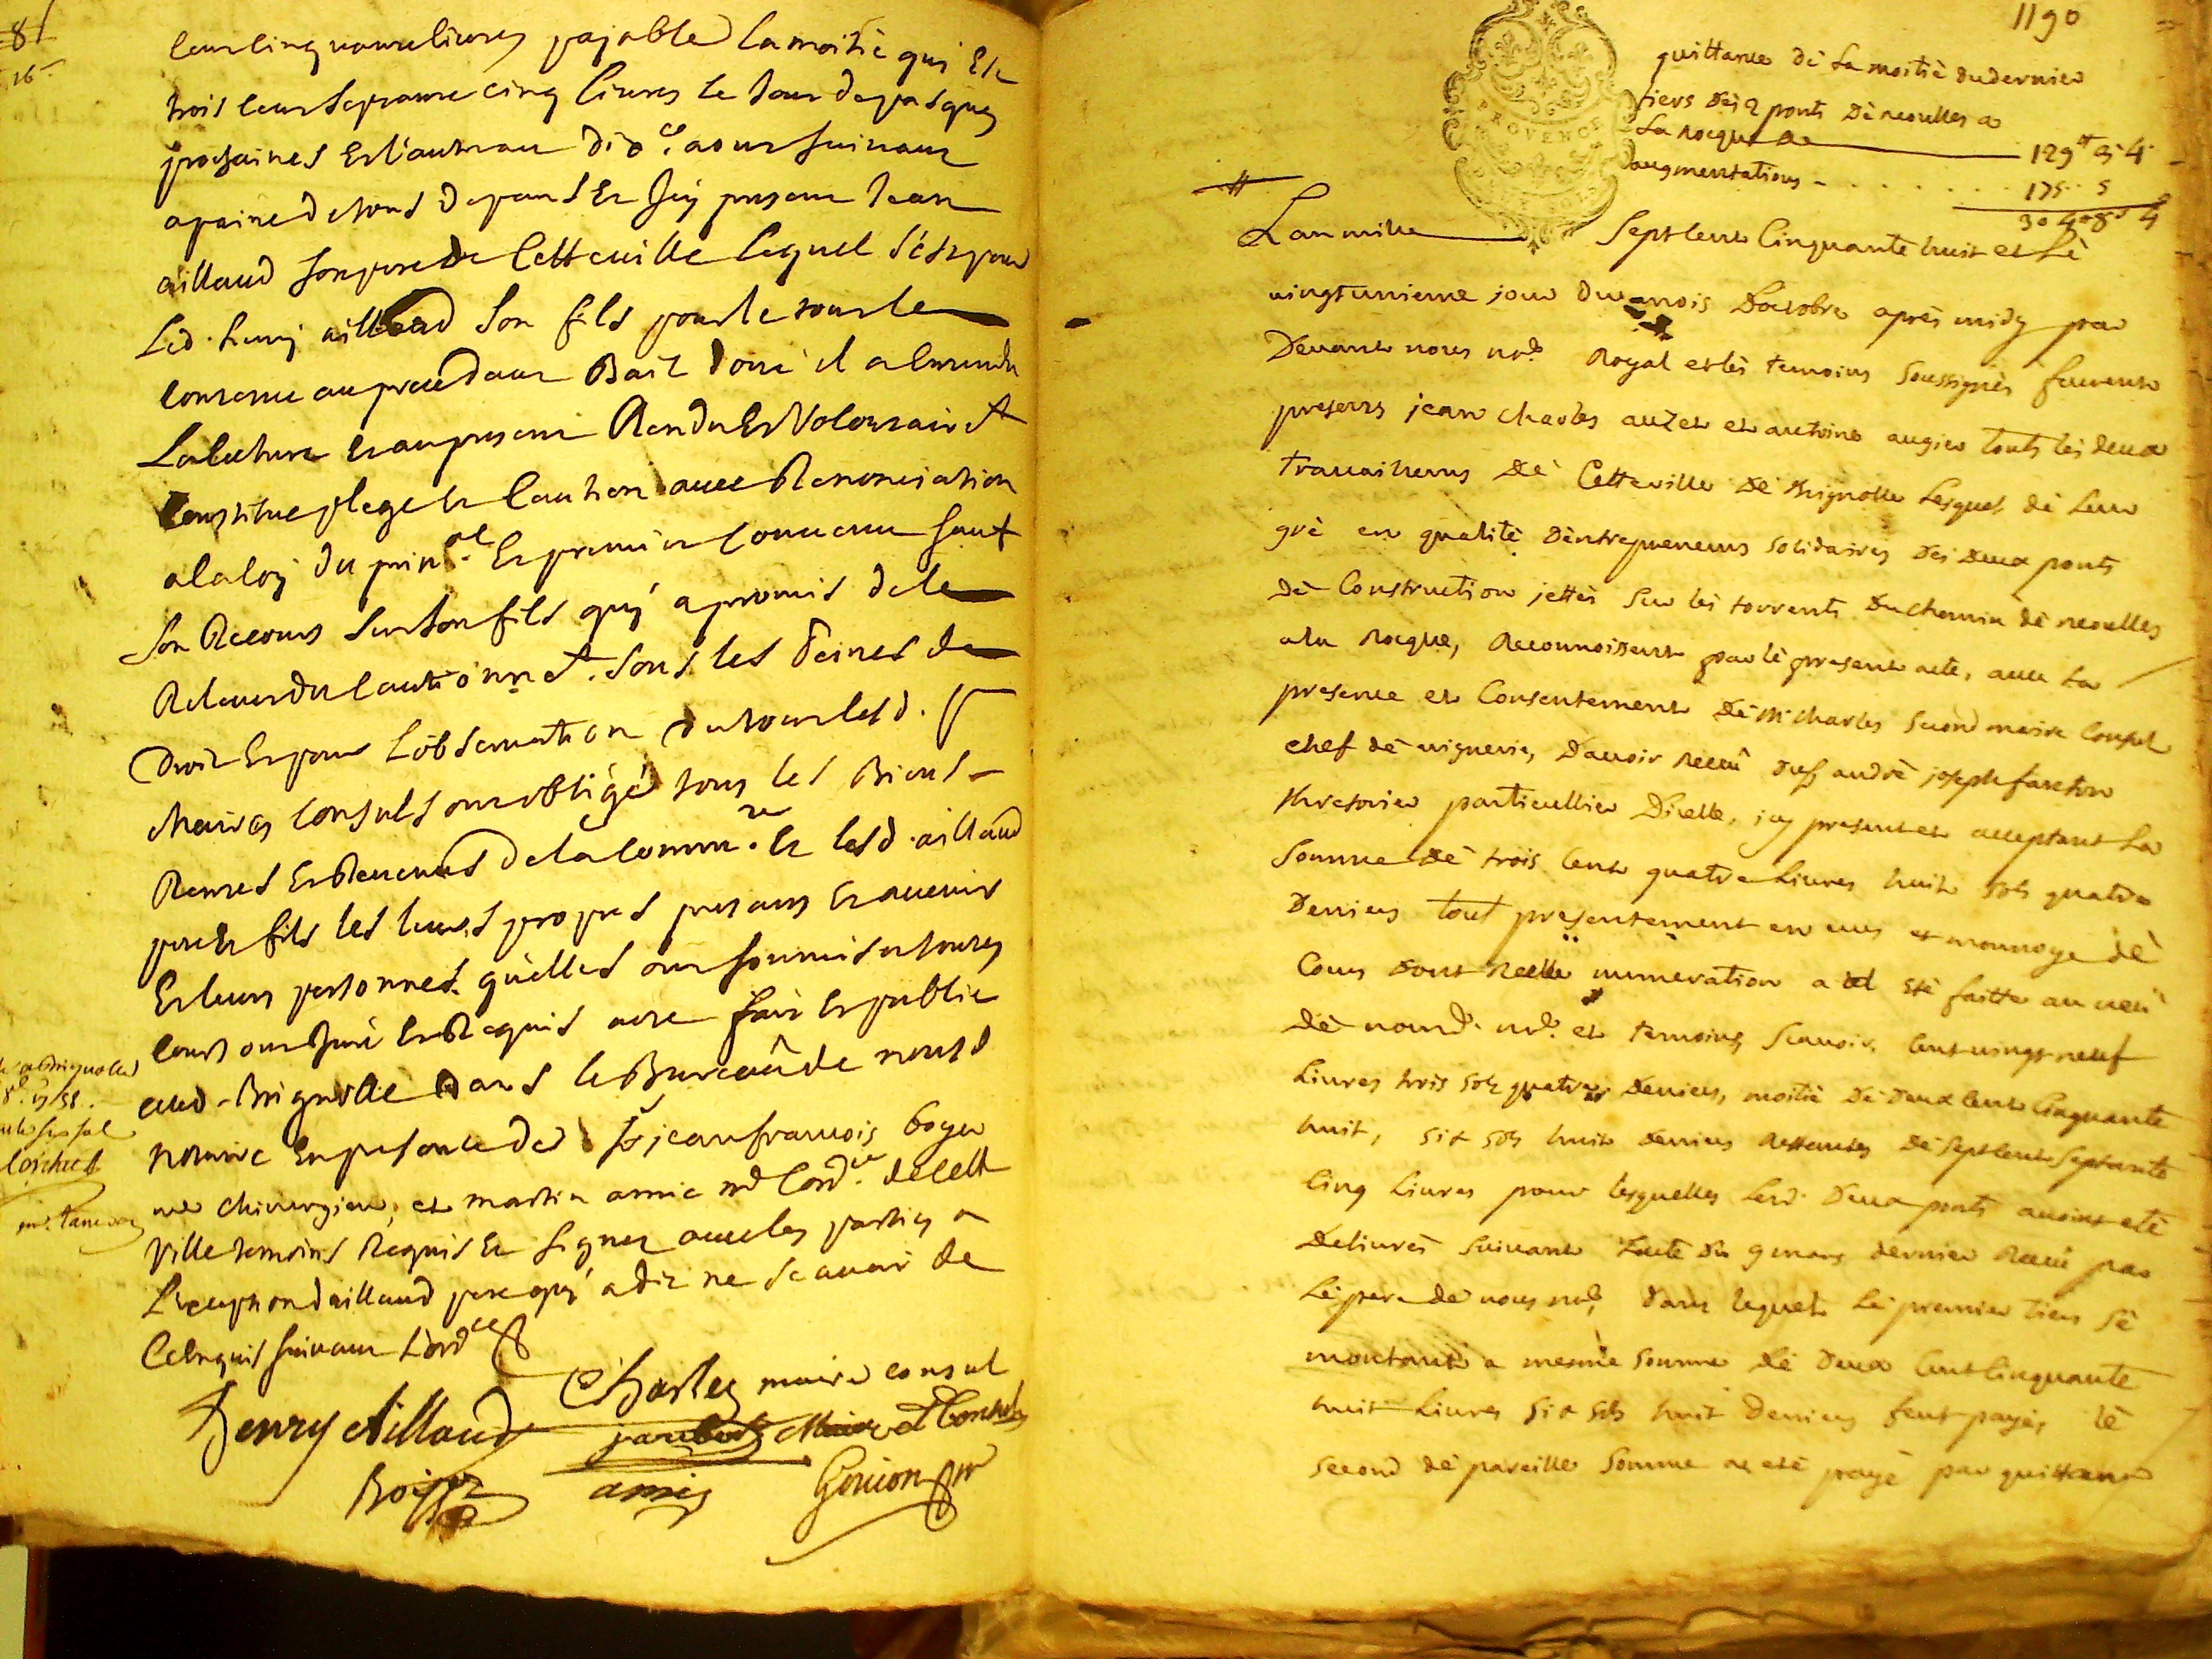 81
16
cent cinquante livres pajable la moitié qui Est
trois cent septante cinq livres le jour de pasques
prochaines Et l'autre au dix aoust suivant
a paine de tous depans Et Jcy present Jean
aillaud son pere de Cette ville lequel s'est pour
Led. henrij aillaud son fils pour le tout le
contenu au precedant Bail dont il a Entendu
La lecture Et au present Rendu Et Volontairet
Constitué plege Et Caution avec Renonciation
a la loy du prinal Et premier convenu sauf
son Recours sur son fils quj a promis de le
Relever du Cautionnet. sous les Peines de
Droit Et pour L'observation du tout lesd. srs
Maires Consuls ont obligé tous les Biens
Rentes Et Revenus de la Communé. Et lesd. aillaud
pere Et fils les leurs propres presans Et avenir
Et leurs personnes qu'elles ont soumis a toutes
Cours ont Juré Et Requis acte fait Et publié
aud. Brignolle Dans le Bureau de nousd.
notaire En presance de Sr jean francois boyer
me chirurgien, et martin amic md Cordr. de Cette
Ville temoins Requis Et signez avec les parties a
L'exception d'aillaud pere quj a dit ne scavoir de
Ce Enquis suivant L'ordce
Charles maire consul
Henry Aillaud
jaubert Maire et Consul
Boyer
amic
Goujon nre
1190
quittance dè La moitiè du dernier
tiers dès 2 ponts Dè neoulles a
La rocque de 129# 3 4
augmentations 175 .. 5
304# 8s 4
PROVENCE
L'an mille Sept Cent Cinquante huit et Lè
vingtunieme jour du mois D'octobre après midy par
Devant nous nore Royal et lès temoins Soussignès furent
presents jean charles auzet et antoine augier touts lès deux
travailleurs dè Cette ville dè Brignolle Lesquels dè Leur
grè en qualitè D'entrepreneurs solidaires des deux ponts
dè Construction jettès sur lès torrents Du chemin dè neoulles
a la Rocque, Reconnoissent par lè present acte, avec La
presence et Consentement dè Mr charles second maire Consul
chef dè viguerie, D'avoir receu du Sr andrè joseph
thresorier particullier D'icelle, icy present et acceptant La
Somme dè trois Cent quatre Livres huit sols quatre
Deniers tout presentement en ecus et monnoye dè
Cours dont reelle numeration a étè faitte au veu
dè nousd. nore. et temoins Scavoir. Cent vingt neuf
Livres trois sols quatre Deniers, moitiè Dè Deux Cent Cinquante
huit, six sols huit deniers restantes dè Sept Cent Septante
Cinq Livres pour lesquelles Lesd. Deux ponts avoint etè
Delivrès suivant L'acte du 9 mars dernier Receu par
Lè pere dè nous nore, dans lequel Lè premier tiers sè
montant a mesme Somme dè deux Cent Cinquante
huit Livres six sols huit Deniers feut payès, lè
second dè pareille Somme a etè payè par quittance